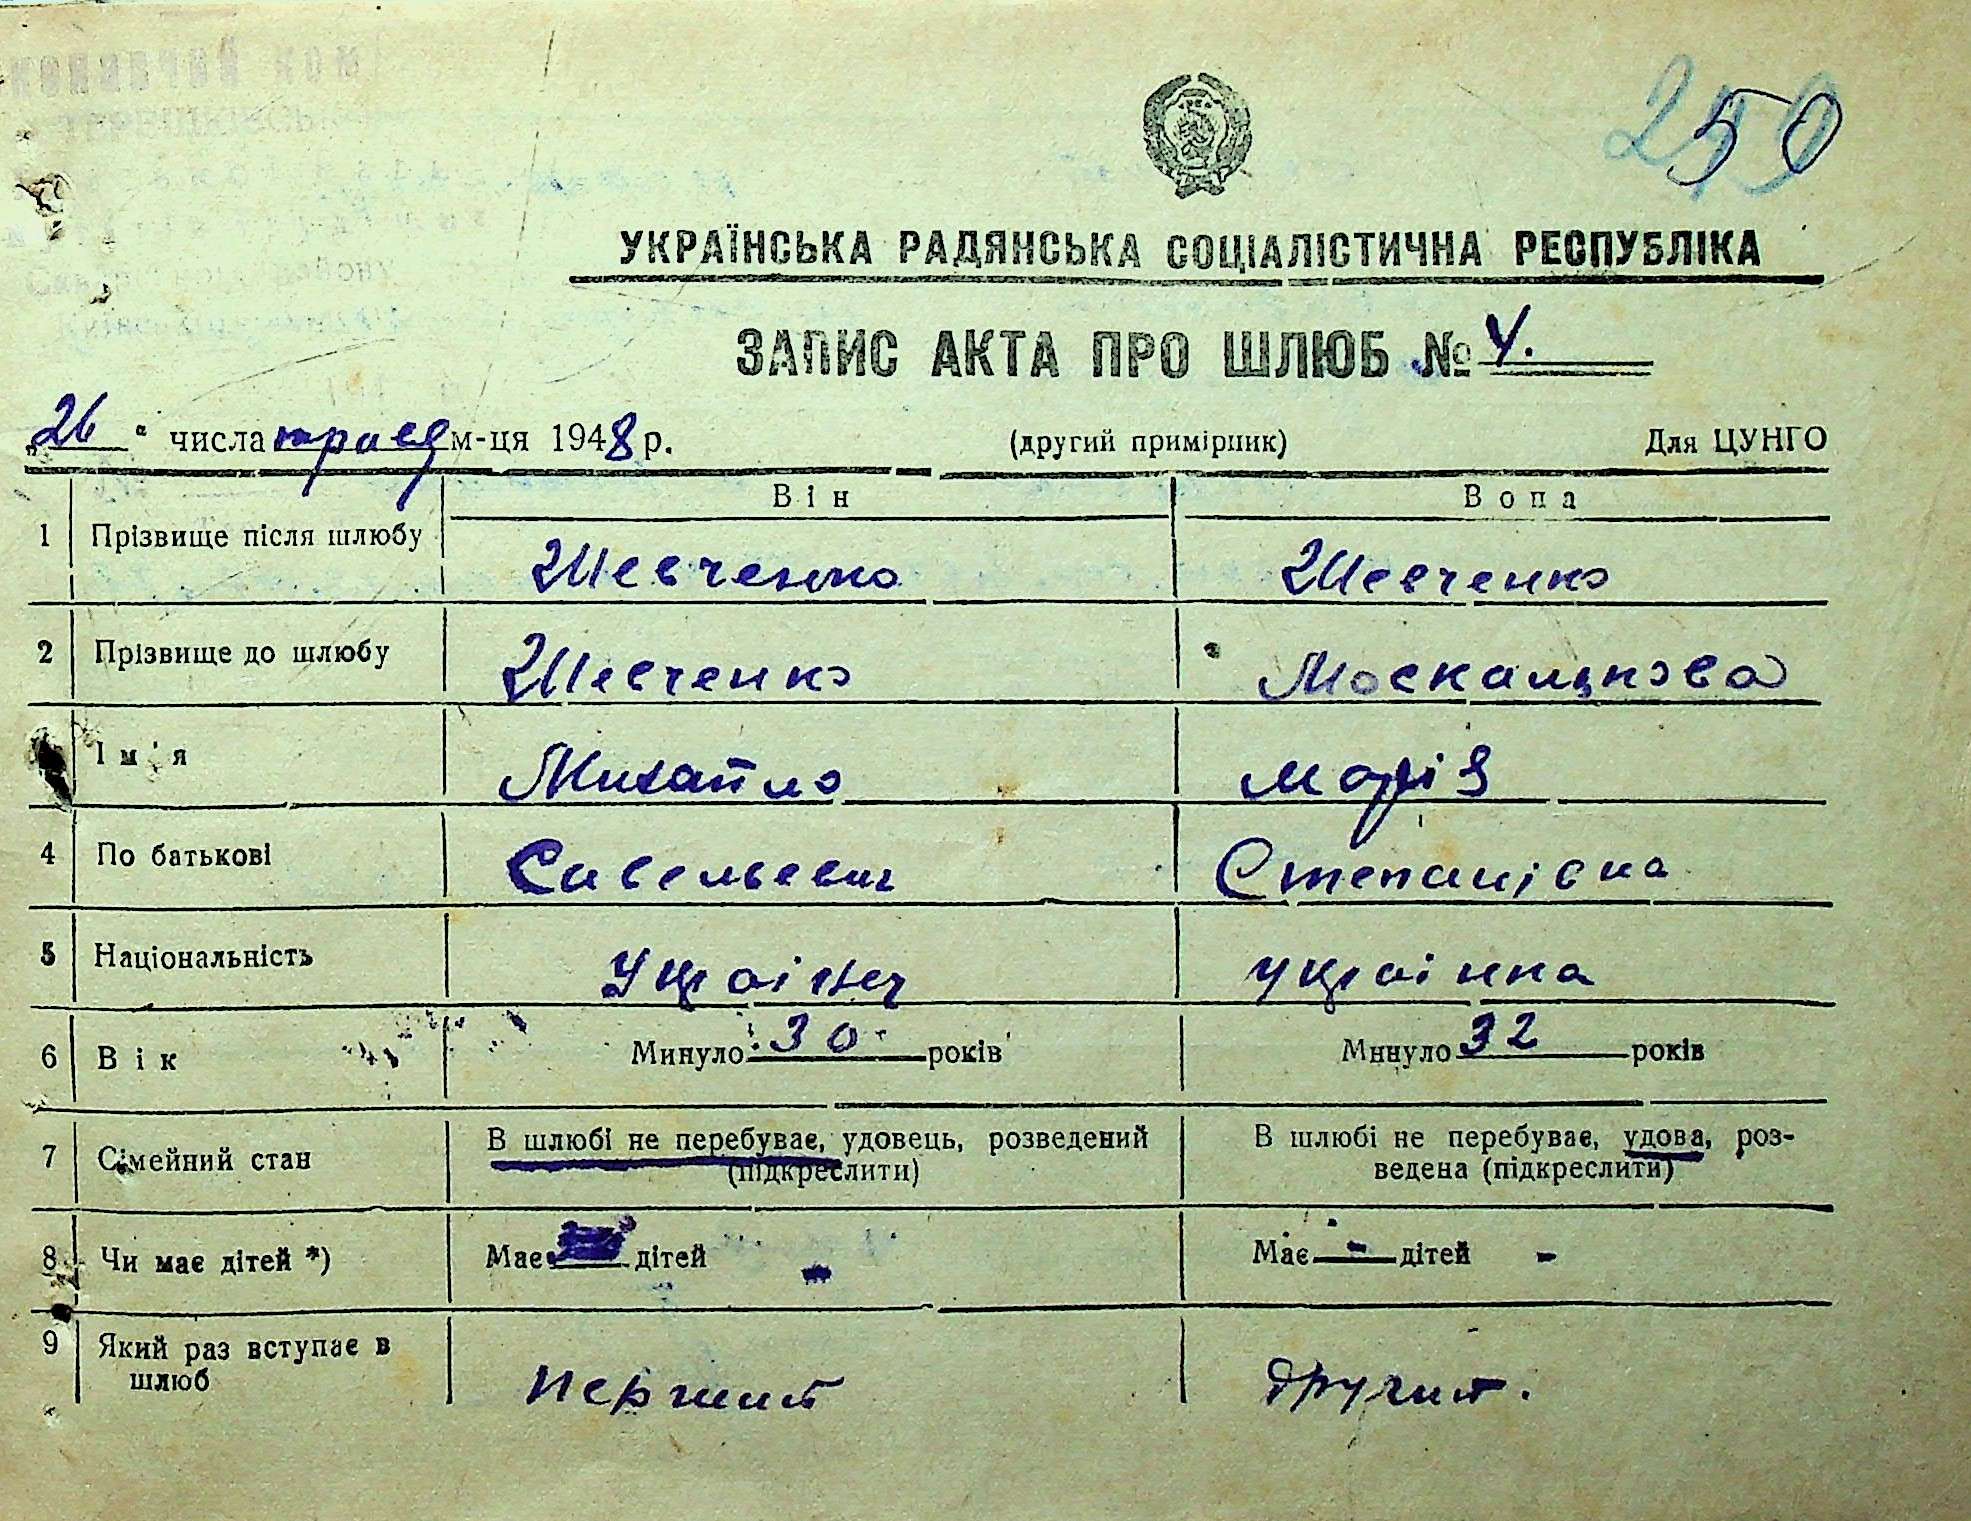 250
УКРАЇНСЬКА РАДЯНСЬКА СОЦІАЛІСТИЧНА РЕСПУБЛІКА
ЗАПИС АКТА ПРО ШЛЮБ № 4.
„26“ числа м-ця 1948 р. (другий примірник) Для ЦУНГО
Він Вона
1 Прізвище після шлюбу Шевченко Шевченко
2 Прізвище до шлюбу Шевченко Москалькова
Ім'я Михайло Марія
4 По батькові Савельевич Степанівна
5 Національність Українец українка
6 Вік Минуло 30 років Минуло 32 років
7 Сімейний стан В шлюбі не перебуває, удовець, розведений (підкреслити) В шлюбі не перебуває, удова, роз-
ведена (підкреслити)
8 Чи має дітей *) Має дітей - Має - дітей -
9 Який раз вступає в
шлюб перший другий.